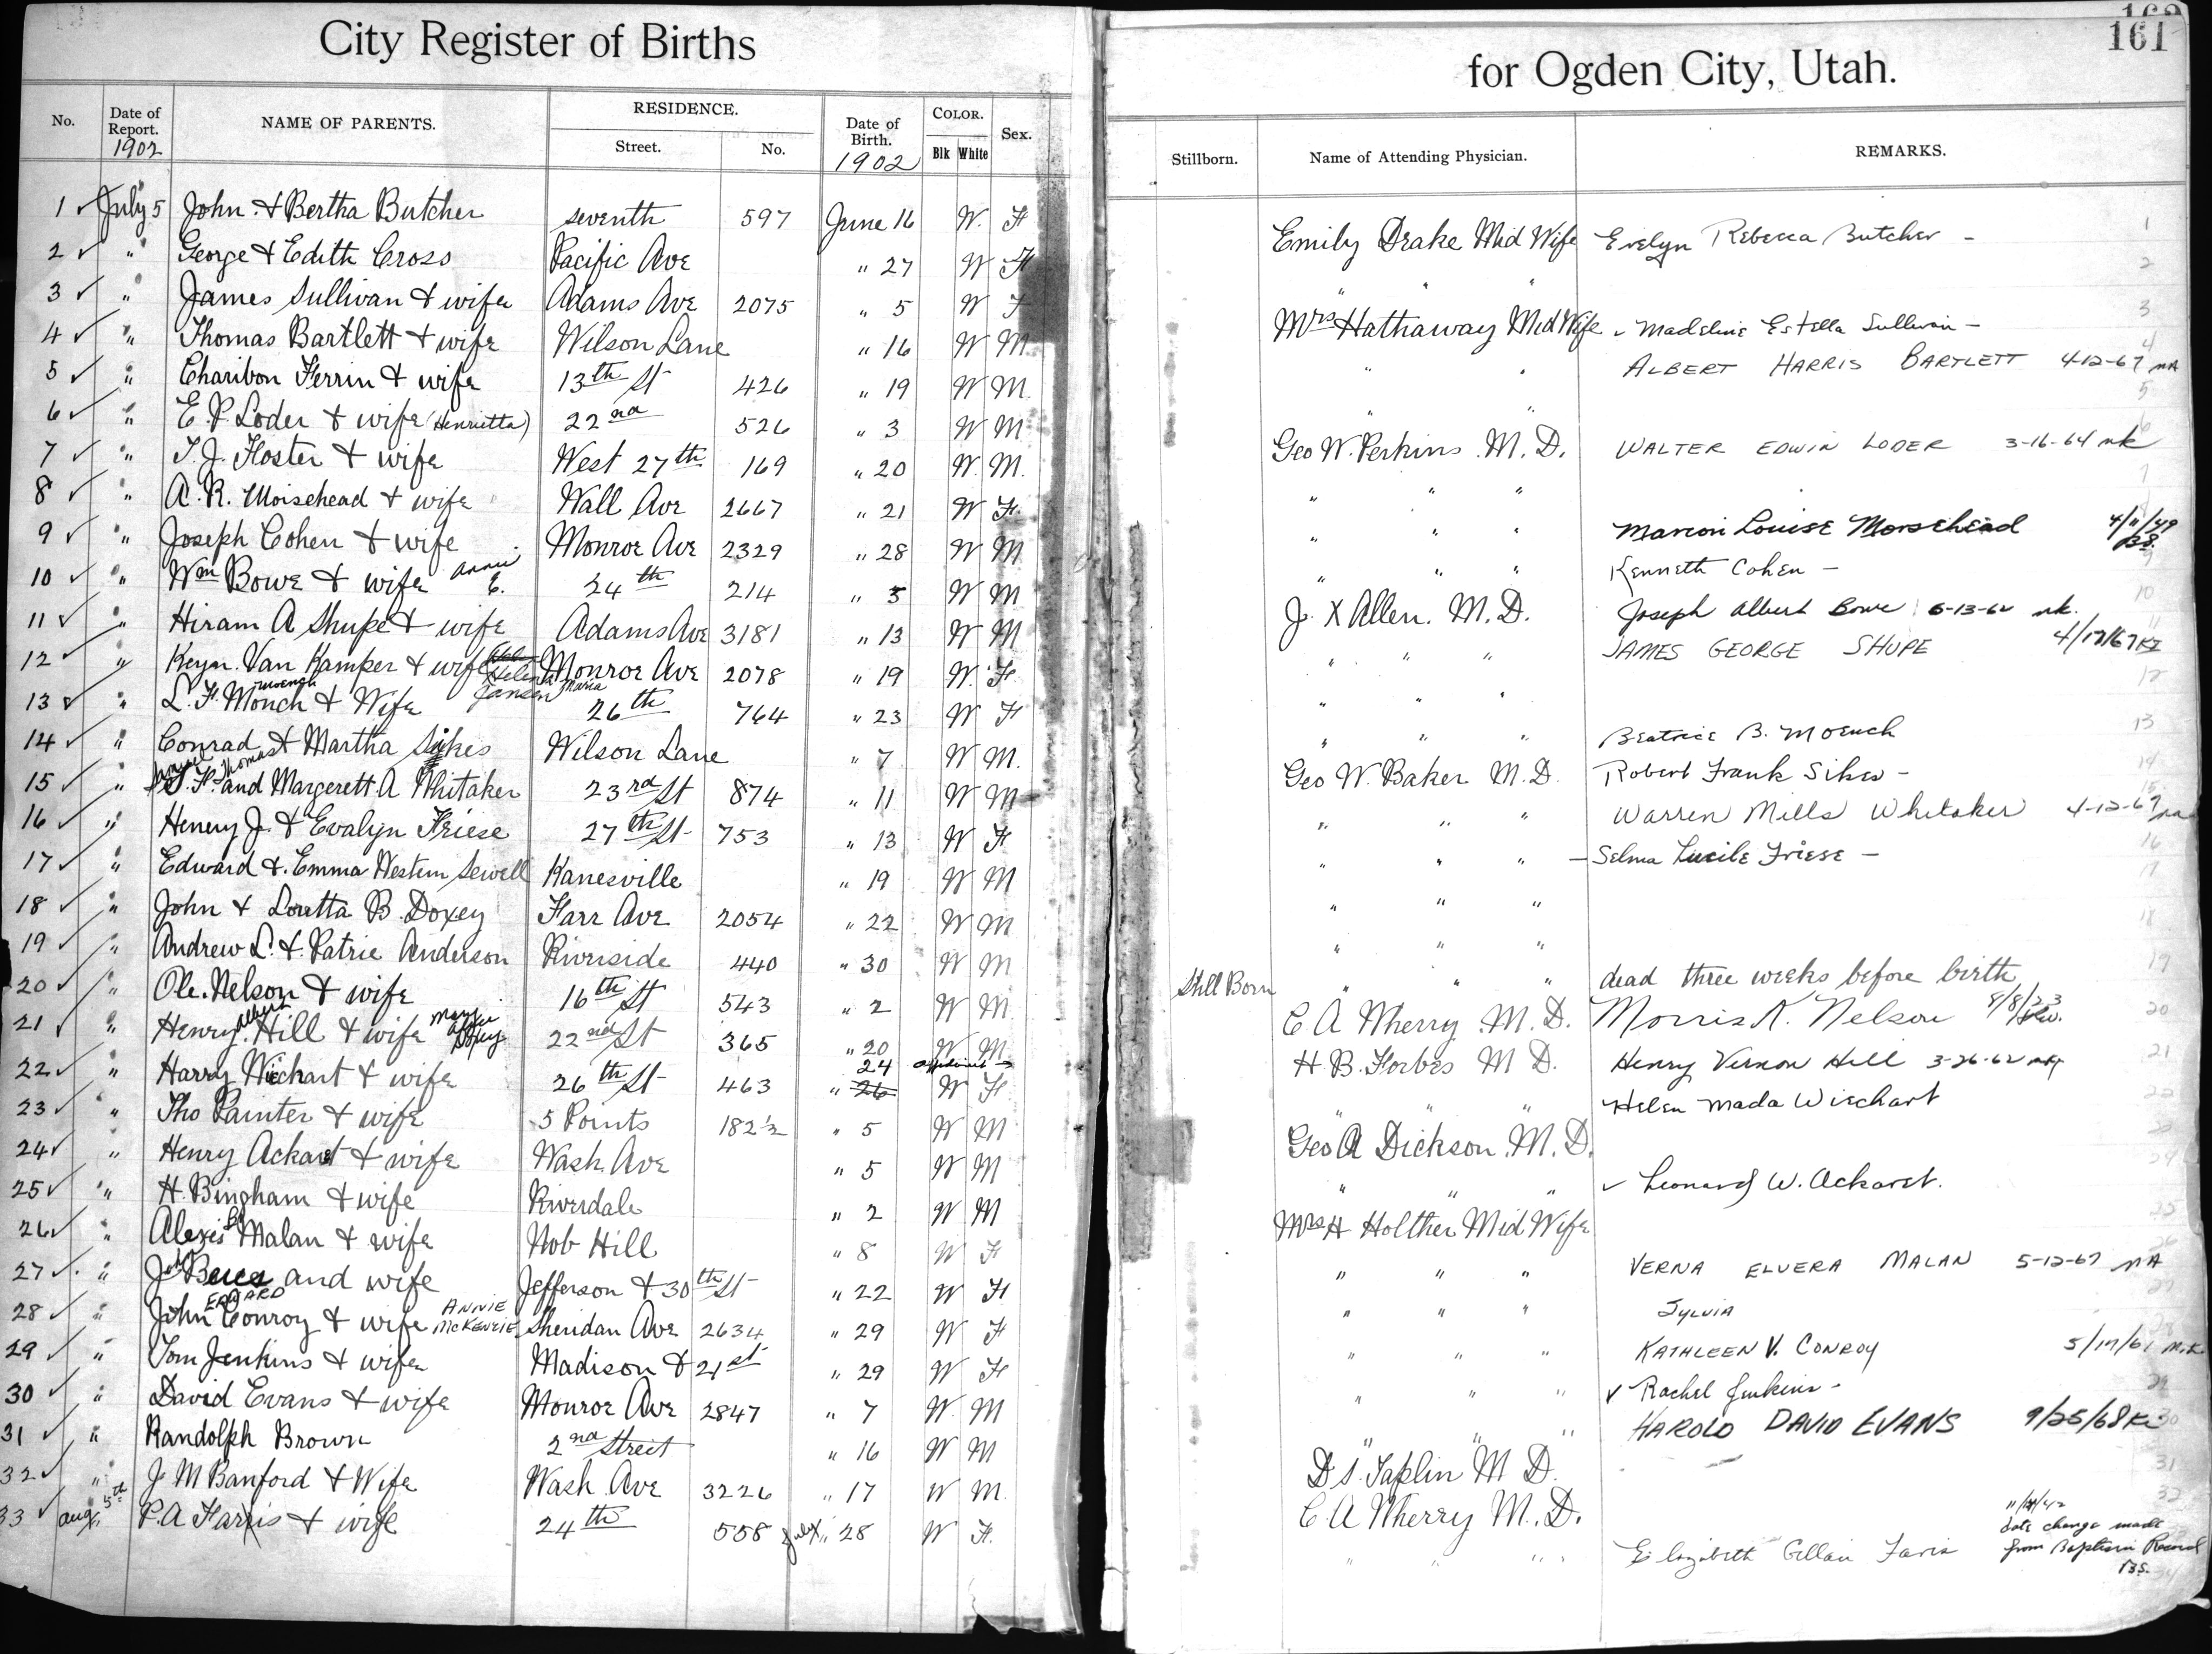 City Register of Births
for Ogden City, Utah.
161
No. Date of Report. 1902 NAME OF PARENTS. RESIDENCE. Street. No. Date of Birth. 1902 COLOR. Blk White Sex.
Stillborn. Name of Attending Physician. REMARKS.
1 July 5 John & Bertha Butcher seventh 597 June 16 W. F Emily Drake Mid Wife Evelyn Rebecca Butcher -
2 " George & Edith Cross Pacific Ave " 27 W F " "
3 " James Sullivan & wife Adams Ave 2075 " 5 W F Mrs Hathaway Mid Wife Madeline Estella Sullivan -
4 " Thomas Bartlett & wife Wilson Lane " 16 W M " " ALBERT HARRIS BARTLETT 4-12-67 MA
5 " Charibon Ferrin & wife 13th St 426 " 19 W M. " "
6 " E. P. Loder & wife (Henrietta) 22nd 526 " 3 W M Geo W. Perkins M. D. WALTER EDWIN LODER 3-16-64 mk
7 " T. J. Foster & wife West 27th 169 " 20 W. M. " " "
8 " A. R. Moisehead & wife Wall Ave 2667 " 21 W F. " " " Marion Louise Morsehead 4/11/49 BS.
9 " Joseph Cohen & wife Monroe Ave 2329 " 28 W M " " " Kenneth Cohen -
10 " Wm Bowe & wife Annie E. 24th 214 " 5 W M J. X Allen. M. D. Joseph Albert Bowe 6-13-62 mk.
11 " Hiram A Shupe & wife Adams Ave 3181 " 13 W M " " " JAMES GEORGE SHUPE 4/17/67 KZ
12 " Keyn. Van Kamper & wife Helena Maria Jansen Monroe Ave 2078 " 19 W. F " " "
13 " L. F. Monch Moench & Wife 26th 764 " 23 W F " " " Beatrice B. Moench
14 " Conrad & Martha Sikes Wilson Lane " 7 W M. Geo W. Baker M. D. Robert Frank Sikes -
15 " S. F. Samuel Thomas and Margerett A Whitaker 23rd St 874 " 11 W M " " " Warren Mills Whitaker 4-12-67 ma
16 " Henery J. & Evalyn Friese 27th St 753 " 13 W F " " " - Selma Lucile Friese -
17 " Edward & Emma Western Sewell Kanesville " 19 W M " " "
18 " John & Loretta B. Doxey Farr Ave 2054 " 22 W M " " "
19 " Andrew L. & Patrie Anderson Riverside 440 " 30 W M Still Born " " " dead three weeks before birth
20 " Ole. Nelson & wife 16th St 543 " 2 W M. C A Wherry M. D. Morris K. Nelson 8/8/23
21 " Henry Albert Hill & wife Mary Alice Doxey 22nd St 365 " 20 W M H. B. Forbes M D. Henry Vernon Hill 3-26-62 mk
22 " Harry Wiechart & wife 26th St 463 " 26 24 affidavit W F " " " Helen Mada Wiechart
23 " Tho Painter & wife 5 Points 182½ " 5 W M Geo A Dickson. M. D.
24 " Henry Ackaret & wife Wash. Ave " 5 W M " " " Leonard W. Ackaret.
25 " H. Bingham & wife Riverdale " 2 W M Mrs H Holther Mid Wife
26 " Alexis Malan & wife Nob Hill " 8 W F " " " VERNA ELVERA MALAN 5-12-67 MA
27 " and wife Jefferson & 30th St " 22 W F " " " SYLVIA
28 " John EDWARD Conroy & wife ANNIE McKENZIE Sheridan Ave 2634 " 29 W F " " " KATHLEEN V. CONROY 5/17/61 M.K.
29 " Tom Jenkins & wife Madison & 21st " 29 W F " " " Rachel Jenkins -
30 " David Evans & wife Monroe Ave 2847 " 7 W. M " " " HAROLD DAVID EVANS 9/25/68
31 " Randolph Brown 2nd Street " 16 W M D. S. Taplin M D.
32 " J. M Banford & Wife Wash Ave 3226 " 17 W M. C. A Wherry M. D.
33 Aug 5th P. A Farris & wife 24th 558 July 28 W F. " " " Elizabeth Gillan Faris date change made from Baptism Record BS.